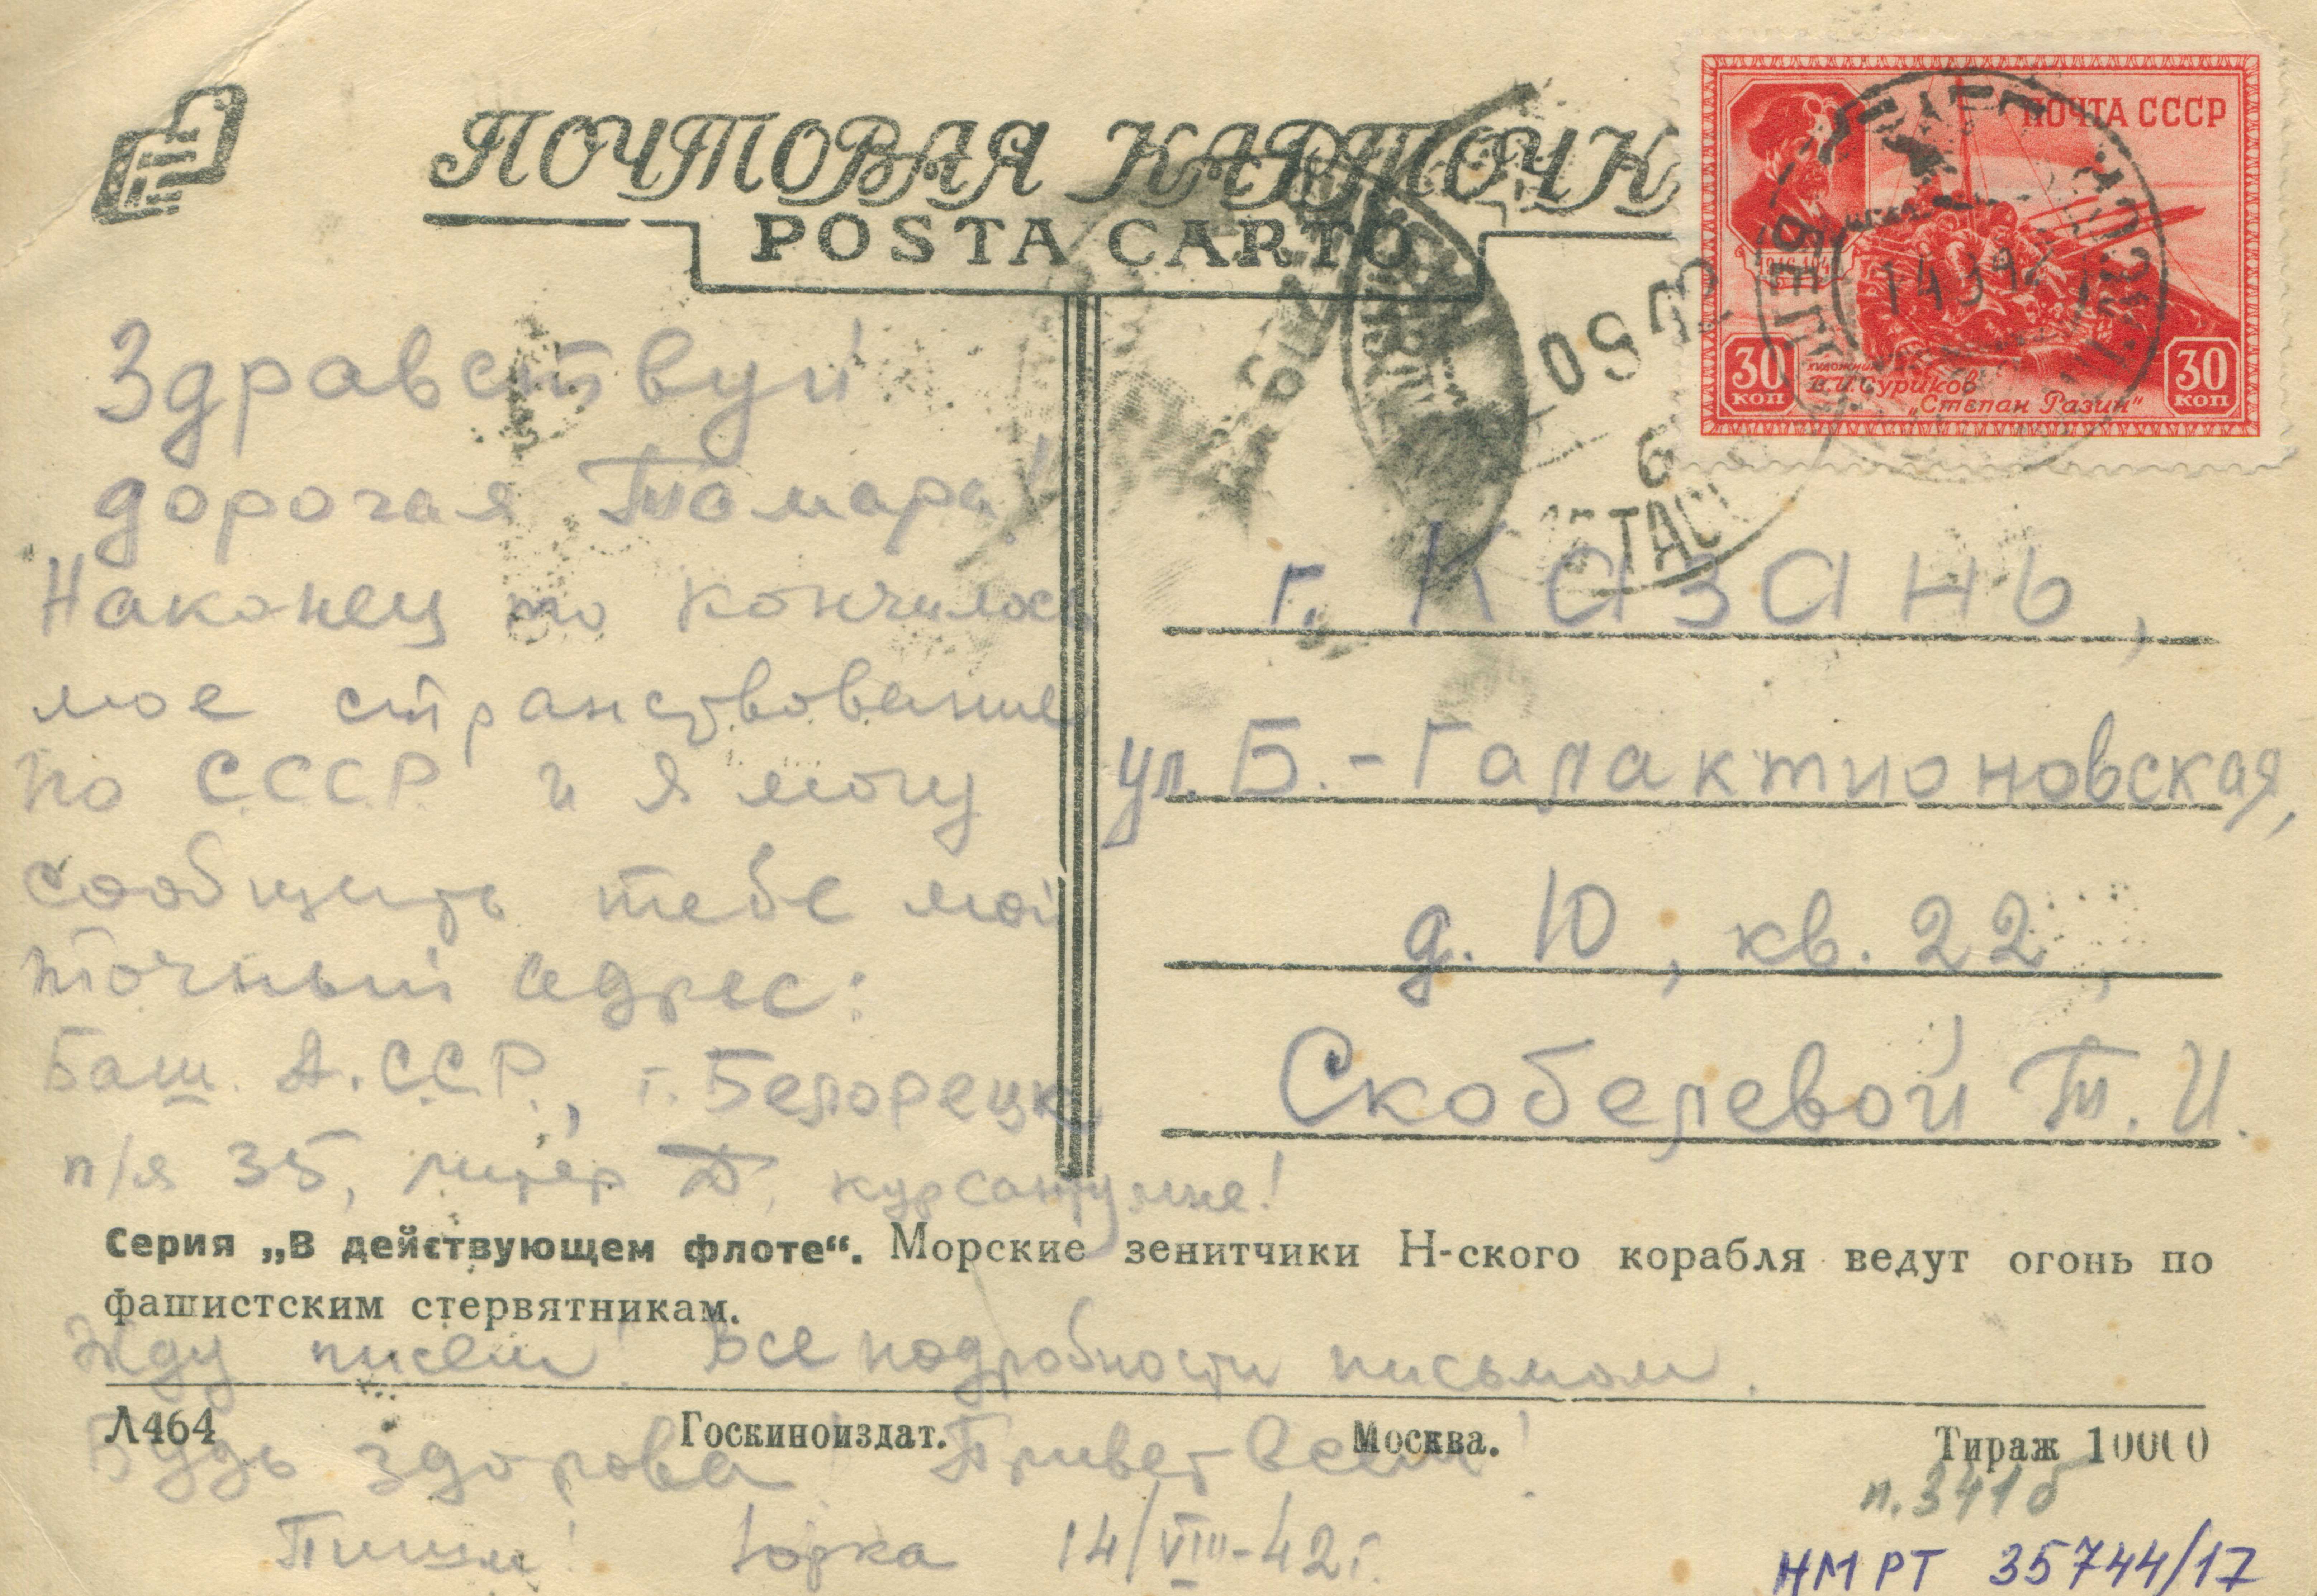 ПОЧТОВАЯ КАРТОЧК
POSTA CARTO
ПОЧТА СССР
30 КОП
художник
В.И. Суриков
„Степан Разин"
30 КОП
Здравствуй
дорогая Тамара!
Наконец то кончилось
мое странствование
по С.С.С.Р. и я могу
сообщить тебе мой
точный адрес:
Баш. А.С.С.Р., г. Белорецк
п/я 35, литер Д, курсанту мне!
г. Казань,
ул. Б.-Галактионовская,
д. 10, кв. 22,
Скобелевой Т. И.
Серия „В действующем флоте“. Морские зенитчики Н-ского корабля ведут огонь по
фашистским стервятникам.
Жду писем! Все подробности письмом.
Л464 Госкиноиздат. Москва. Тираж 10000
Будь здорова! Привет всем!
п. 3416
Пиши! Юрка 14/VIII-42 г.
НМ РТ 35744/17